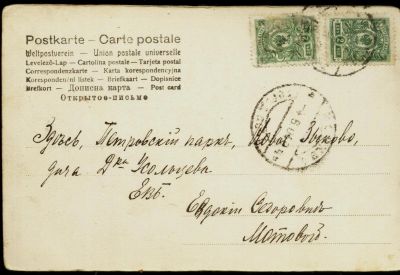 Postkarte – Carte postale
Weltpostverein – Union postale universelle
Levelező-Lap – Cartolina postale – Tarjeta postal
Correspondenzkarte – Karta korespondencyjna
Korespondenční lístek – Briefkaart – Dopisnice
Brefkort – Дописна карта – Post card
Открытое-письмо
Здѣсь, Петровскій паркъ, Новое Зыково,
дача Д-ра Усольцева
Евдокіи Егоровнѣ
Мотовой.